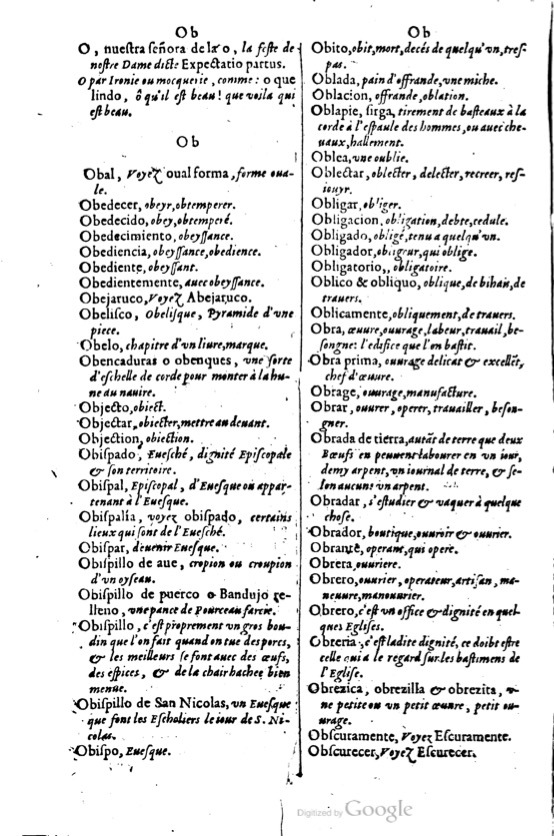 Ob
O, nuestra señora de la o, la feste de
nostre Dame dicte Expectatio partus.
O par Ironie ou mocquerie, comme: o que
lindo, ô qu'il est beau! que voila qui
est beau.
Ob
Obal, Voyez oual forma, forme oua-
le.
Obedecer, obeyr, obtemperer.
Obedecido, obey, obtemperé.
Obedecimiento, obeyſſance.
Obediencia, obeyſſance, obedience.
Obediente, obeyſſant.
Obedientemente, auec obeyſſance.
Obejaruco, Voyez Abejaruco.
Obeliſco, Obeliſque, Pyramide d'vne
piece.
Obelo, chapitre d'vn liure, marque.
Obencaduras o obenques, vne ſorte
d'eſchelle de corde pour monter à la hu-
ne du nauire.
Objecto, obiect.
Objectar, obiecter, mettre au deuant.
Objection, obiection.
Obiſpado, Eueſché, dignité Epiſcopale
& ſon territoire.
Obiſpal, Epiſcopal, d'Eueſque ou appar-
tenant à l'Eueſque.
Obiſpalia, voyez obiſpado, certains
lieux qui ſont de l'Eueſché.
Obiſpar, deuenir Eueſque.
Obiſpillo de aue, cropion ou croupion
d'vn oyſeau.
Obiſpillo de puerco o Bandujo re-
lleno, vne pance de pourceau farcie.
Obiſpillo, c'eſt proprement vn gros bou-
din que l'on fait quand on tue des porcs,
& les meilleurs ſe font auec des œufs,
des eſpices, & de la chair hachee bien
menue.
Obiſpillo de San Nicolas, vn Eueſque
que font les Eſcholiers le iour de S. Ni-
colas.
Obiſpo, Eueſque.
Ob
Obito, obit, mort, decés de quelqu'vn, treſ-
pas.
Oblada, pain d'offrande, vne miche.
Oblacion, offrande, oblation.
Oblapie, ſirga, tirement de baſteaux à la
corde à l'eſpaule des hommes, ou auec che-
uaux, hallement.
Oblea, vne oublie.
Oblectar, oblecter, delecter, recreer, reſ-
iouyr.
Obligar, obliger.
Obligacion, obligation, debte, cedule.
Obligado, obligé, tenu a quelqu'vn.
Obligador, obligeur, qui oblige.
Obligatorio,, obligatoire.
Oblico & obliquo, oblique, de bihais, de
trauers.
Oblicamente, obliquement, de trauers.
Obra, œuure, ouurage, labeur, trauail, be-
ſongne: l'edifice que l'on baſtit.
Obra prima, ouurage delicat & excellēt,
chef d'œuure.
Obrage, ouurage, manufacture.
Obrar, ouurer, operer, trauailler, beſon-
gner.
Obrada de tierra, autāt de terre que deux
Bœufs en peuuent labourer en vn iour,
demy arpent, vn iournal de terre, & ſe-
lon aucuns vn arpent.
Obradar, s'eſtudier & vaquer à quelque
choſe.
Obrador, boutique, ouuroir & ouurier.
Obrante, operant, qui opere.
Obrera, ouuriere.
Obrero, ouurier, operateur, artiſan, ma-
neuure, manouurier.
Obrero, c'eſt vn office & dignité en quel-
ques Egliſes.
Obreria, c'eſt ladite dignité, ce doibt eſtre
celle qui a le regard ſur les baſtimens de
l'Egliſe.
Obrezica, obrezilla & obrezita, v-
ne petite ou vn petit œuure, petit ou-
urage.
Obſcuramente, Voyez Eſcuramente.
Obſcurecer, Voyez Eſcurecer.
Digitized by Google